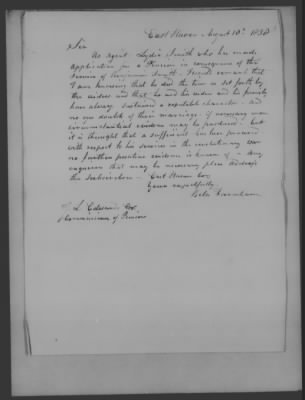 East Haven August 10th 1838
Sir
As agent Lydia Smith who has made
application for a Pension in consequence of the
service of Benjamin Smith I would remark that
I am knowing that he died the time is set forth by
the widow and that he and his widow and his family
have always sustained a reputable character and
no one doubts of their marriage. If necessary more
circumstantial evidence may be produced but
it is thought that a sufficient has been produced
with respect to his service in the revolutionary war
no further positive evidence is known of - Any
enquiries that may be necessary please address
the Subscriber - East Haven Con
Yours respectfully
J. L. Edwards Esq
Commissioner of Pensions